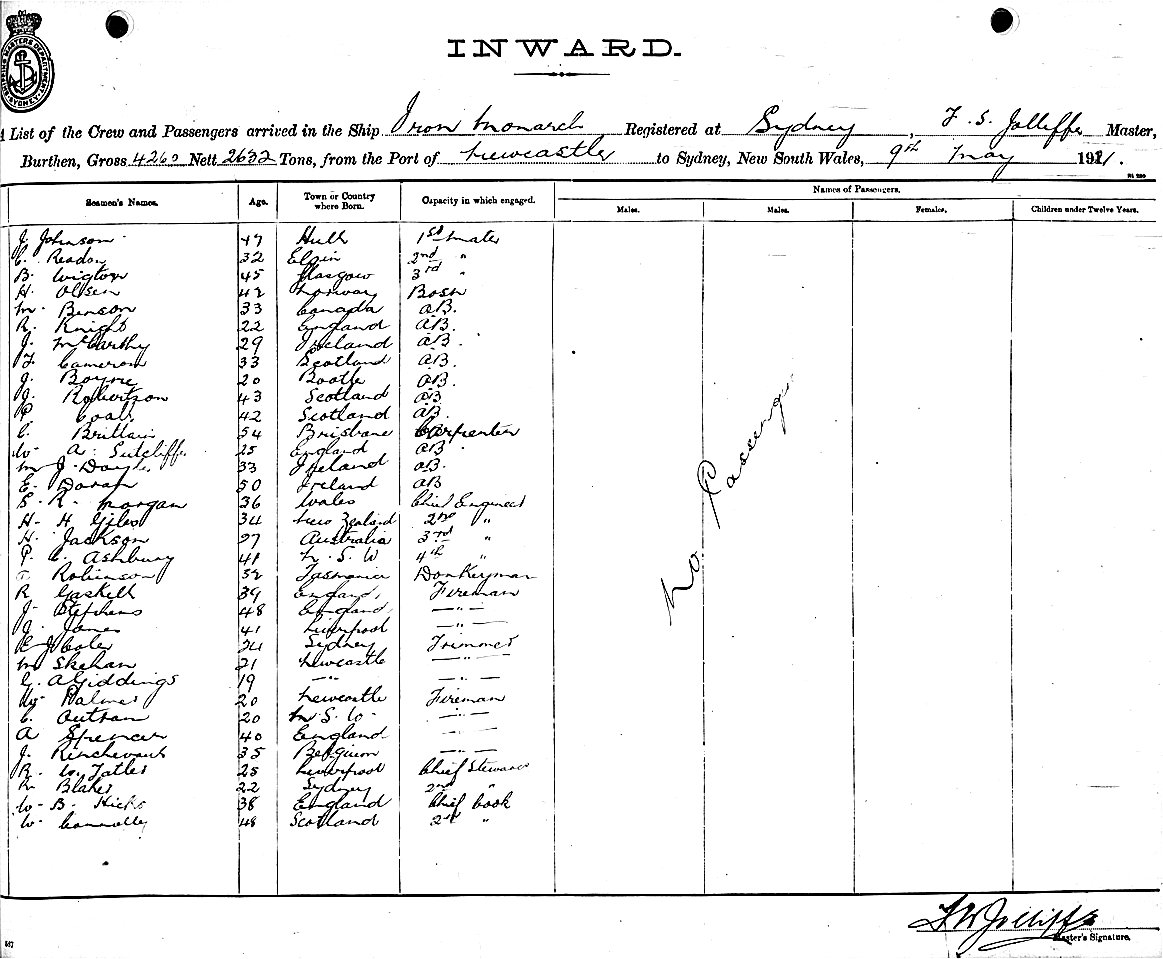 SHIPPING MASTERS DEPARTMENT SYDNEY
INWARD.
A List of the Crew and Passengers arrived in the Ship Iron Monarch Registered at Sydney, F. S. Jolliffe Master,
Burthen, Gross 4262 Nett 2632 Tons, from the Port of Newcastle to Sydney, New South Wales, 9th May 1921.
Seamen's Names. Age. Town or Country where Born. Capacity in which engaged. Names of Passengers.
Males. Males. Females. Children under Twelve Years.
J. Johnson 47 Hull 1st Mate
C. Readon 32 Elgin 2nd "
B. Wigton 45 Glasgow 3rd "
H. Olsen 42 Norway Bosn
M. Benson 33 Canada AB.
R. Knight 22 England AB.
J. McCarthy 29 Ireland AB.
F. Cameron 33 Scotland AB.
J. Boyne 20 Bootle AB.
J. Robertson 43 Scotland AB
P. 42 Scotland AB.
C. Brittain 54 Brisbane Carpenter
W. A. Sutcliffe 25 England AB
M J. Doyle 33 Ireland AB.
E. Doran 50 Ireland AB
S. R. Morgan 36 Wales Chief Engineer
H. H. Giles 34 New Zealand 2nd "
H. Jackson 27 Australia 3rd "
P. C. Ashbury 41 N.S.W 4th "
Robinson 32 Tasmania Donkeyman
R Gaskell 39 England, Fireman
J. Stephens 48 England, — " —
J. Jones 41 Liverpool — " —
C J Coles 24 Sydney Trimmer
M Skehan 21 Newcastle — " —
C. A Giddings 19 — " — — " —
Palmer 20 Newcastle Fireman
C. 20 N.S.W. — " —
A Spencer 40 England — " —
J. 35 Belgium — " —
R. W. Tatler 25 Liverpool Chief Steward
R Blake 22 Sydney 2nd "
W. B. Hicks 38 England Chief Cook
W. Connolly 48 Scotland 2nd "
No. Passengers
Master's Signature.
587